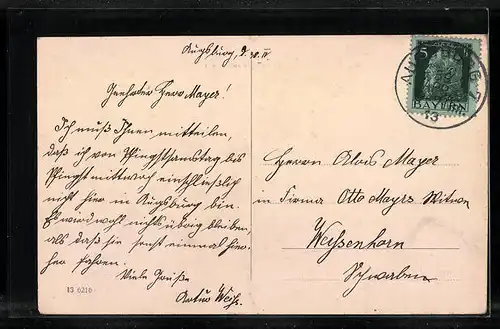 Augsburg, d. 30. IV.
Geehrter Herr Mayer!
Ich muß Ihnen mitteilen,
daß ich von Pfingstsamstag bis
Pfingstmittwoch einschließlich
nicht hier in Augsburg bin.
Es wird wohl nichts übrig bleiben,
als daß sie sonst einmal hier-
her fahren.
Viele Grüße
Artur Weiß.
13 6216
5
BAYERN
13
Herrn Alois Mayer
in Firma Otto Mayrs Witwe
Weissenhorn
Schwaben